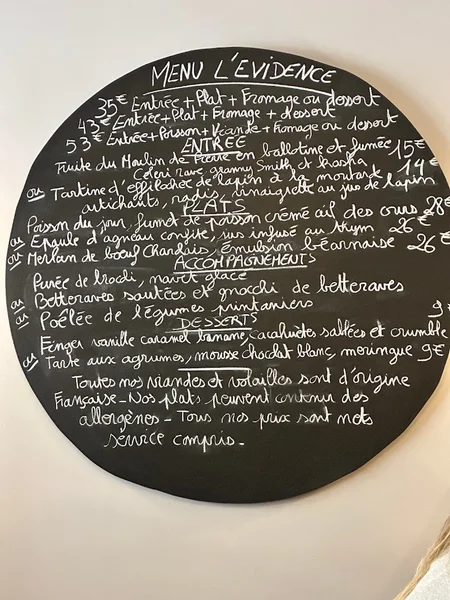 MENU L'EVIDENCE
35€ Entrée + Plat + Fromage ou dessert
43€ Entrée + Plat + Fromage + dessert
53€ Entrée + Poisson + Viande + Fromage ou dessert
ENTRÉE
Truite du Moulin de Pierre en ballotine et fumée 15€
Céleri rave granny Smith et
ou Tartine d'effilochée de lapin à la moutarde 14€
artichauts, radis, vinaigrette au jus de lapin
PLATS
Poisson du jour, fumet de poisson crémé ail des ours 28€
ou Epaule d'agneau confite, jus infusé au thym 26€
ou Morceau de bœuf Charolais, émulsion béarnaise 26€
ACCOMPAGNEMENTS
Purée de brocoli, navet glacé
ou Betteraves sautées et gnocchi de betteraves
ou Poêlée de légumes printaniers
DESSERTS 9€
Finger vanille caramel banane, Cacahuètes salées et crumble
ou Tarte aux agrumes, mousse chocolat blanc, meringue 9€
Toutes nos viandes et volailles sont d'origine
Française - Nos plats peuvent contenir des
allergènes - Tous nos prix sont nets
service compris -